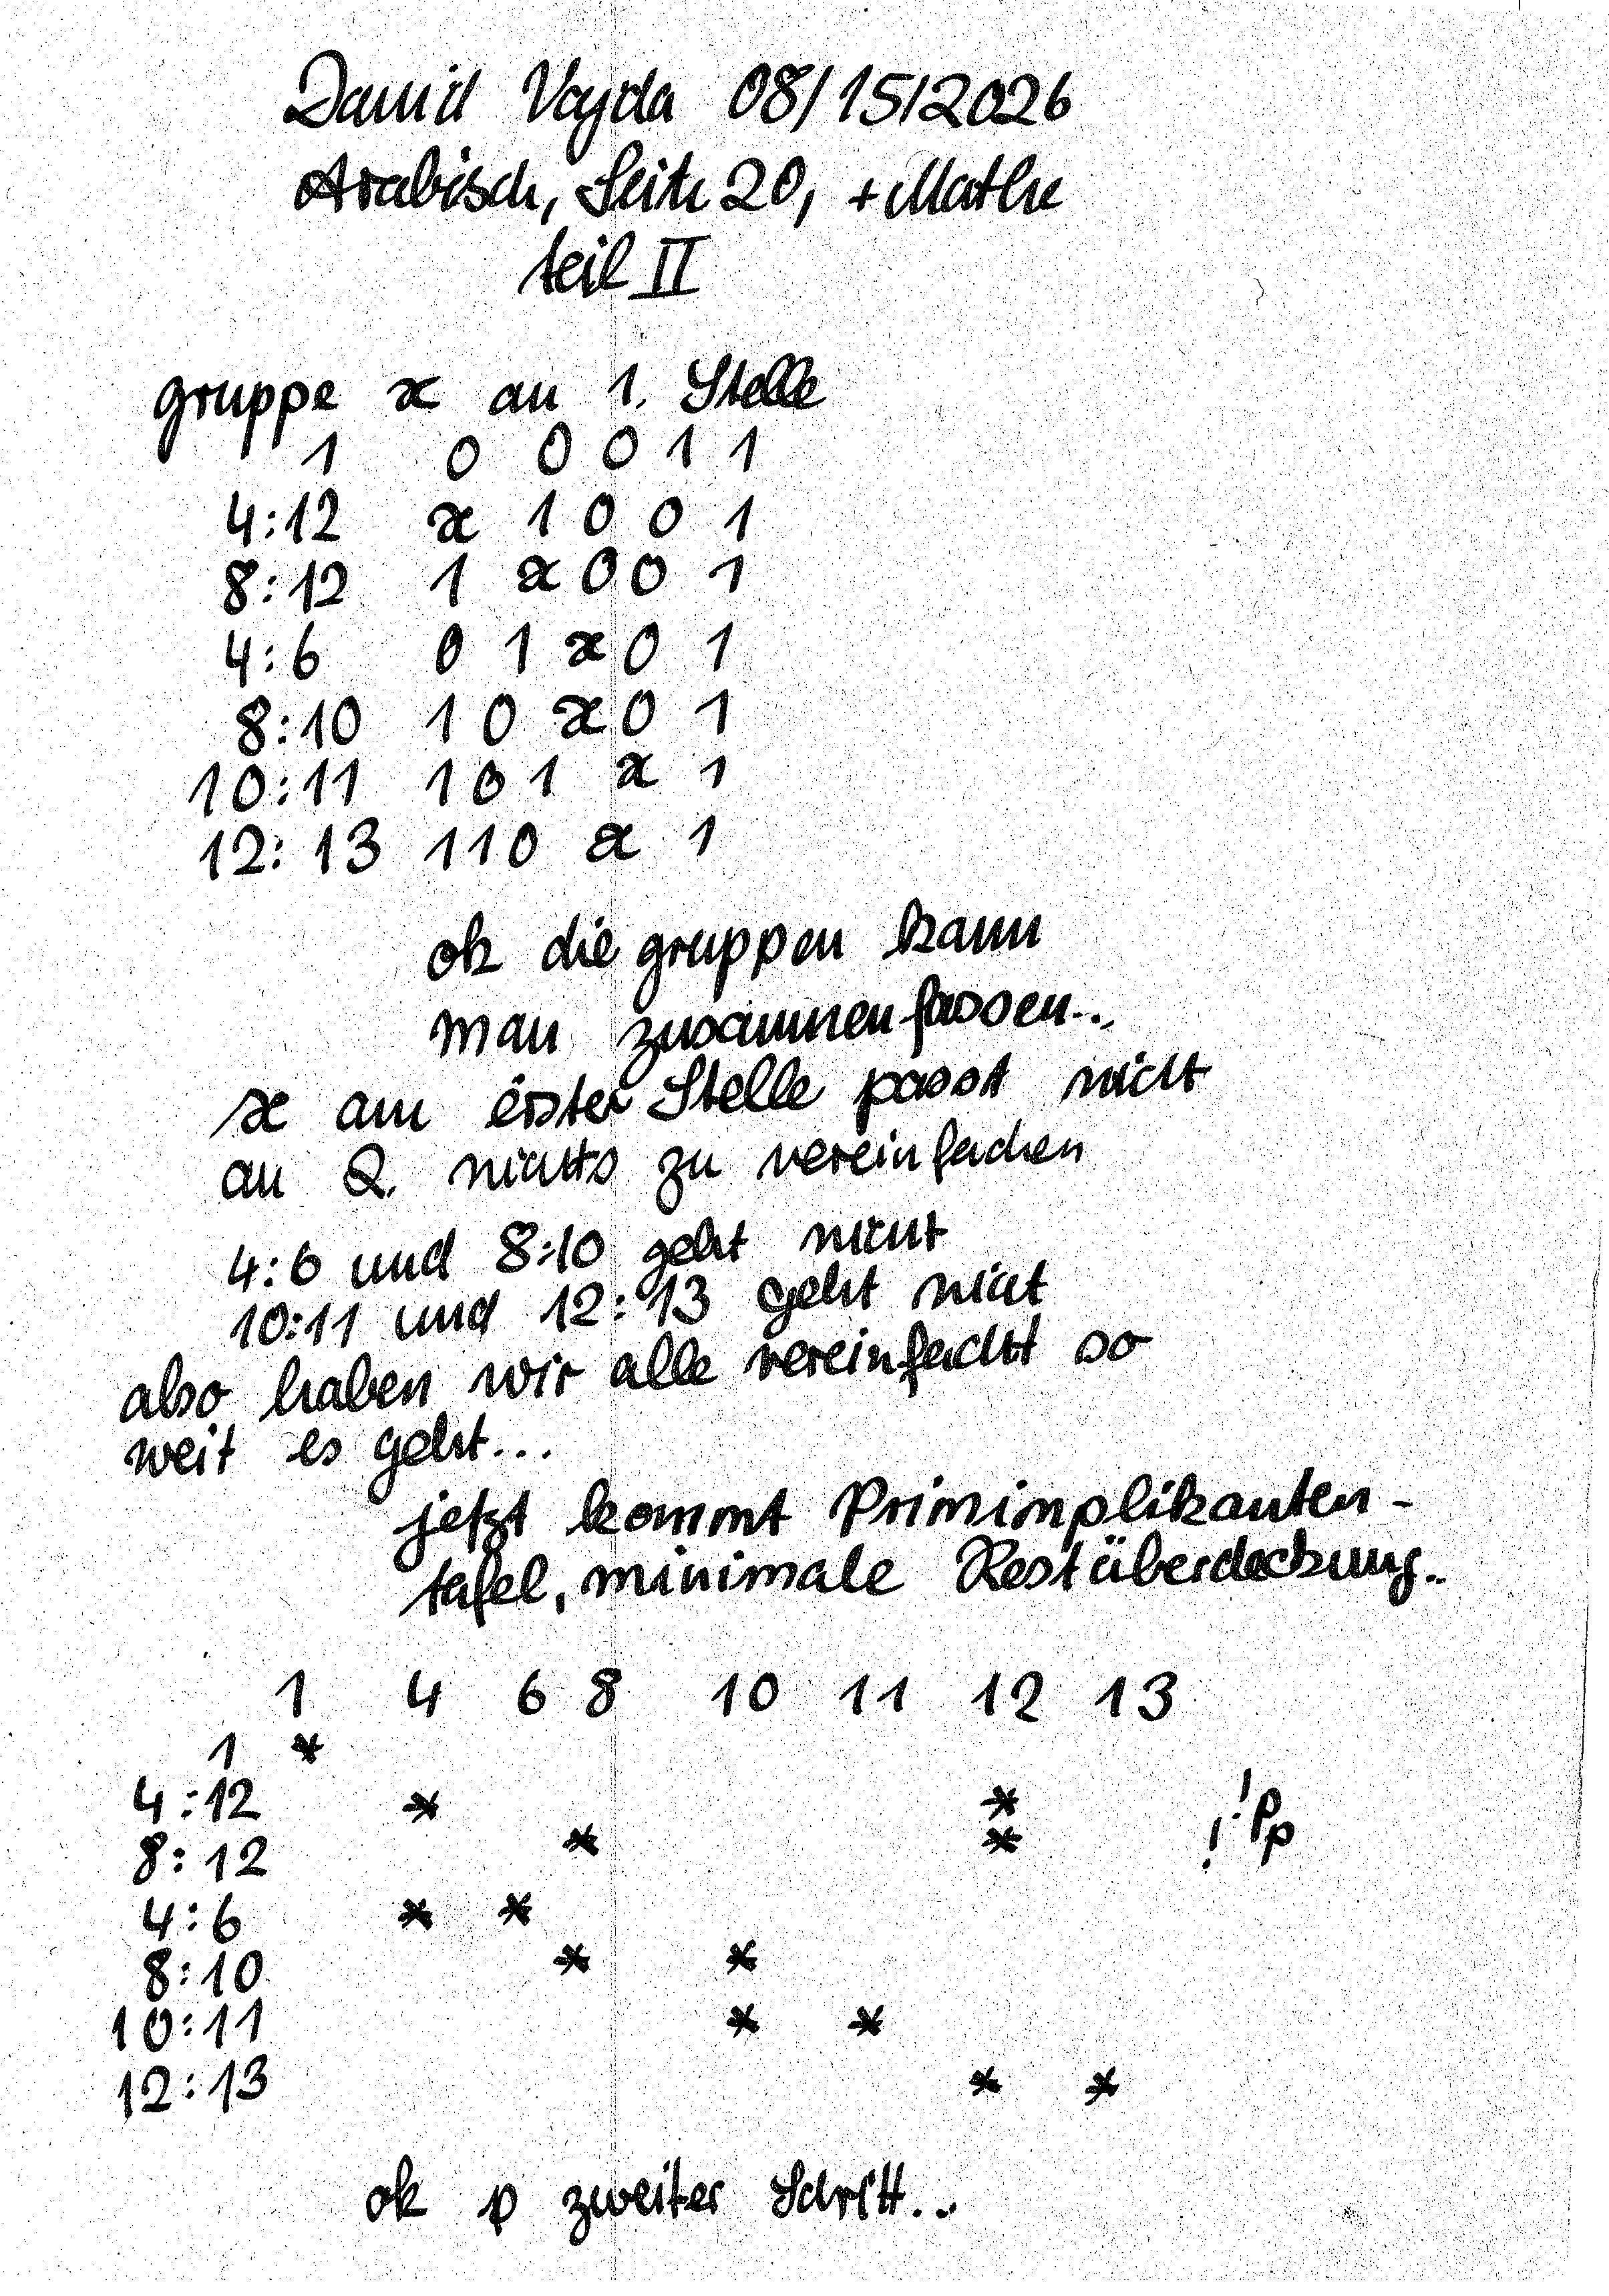 David Vajda 08/15/2026
Arabisch, Seite 20, + Mathe
teil II
gruppe x an 1. Stelle
1 0 0 0 1 1
4:12 x 1 0 0 1
8:12 1 x 0 0 1
4:6 0 1 x 0 1
8:10 1 0 x 0 1
10:11 1 0 1 x 1
12:13 1 1 0 x 1
ok die gruppen kann
man zusammenfassen..
x am erster Stelle passt nicht
an 2. nichts zu vereinfachen
4:6 und 8:10 geht nicht
10:11 und 12:13 geht nicht
also haben wir alle vereinfacht so
weit es geht...
jetzt kommt Primimplikanten-
tafel, minimale Restüberdeckung..
1 4 6 8 10 11 12 13
1 *
4:12 * *
8:12 * *
! ! Pp
4:6 * *
8:10 * *
10:11 * *
12:13 * *
ok p zweiter Schritt...